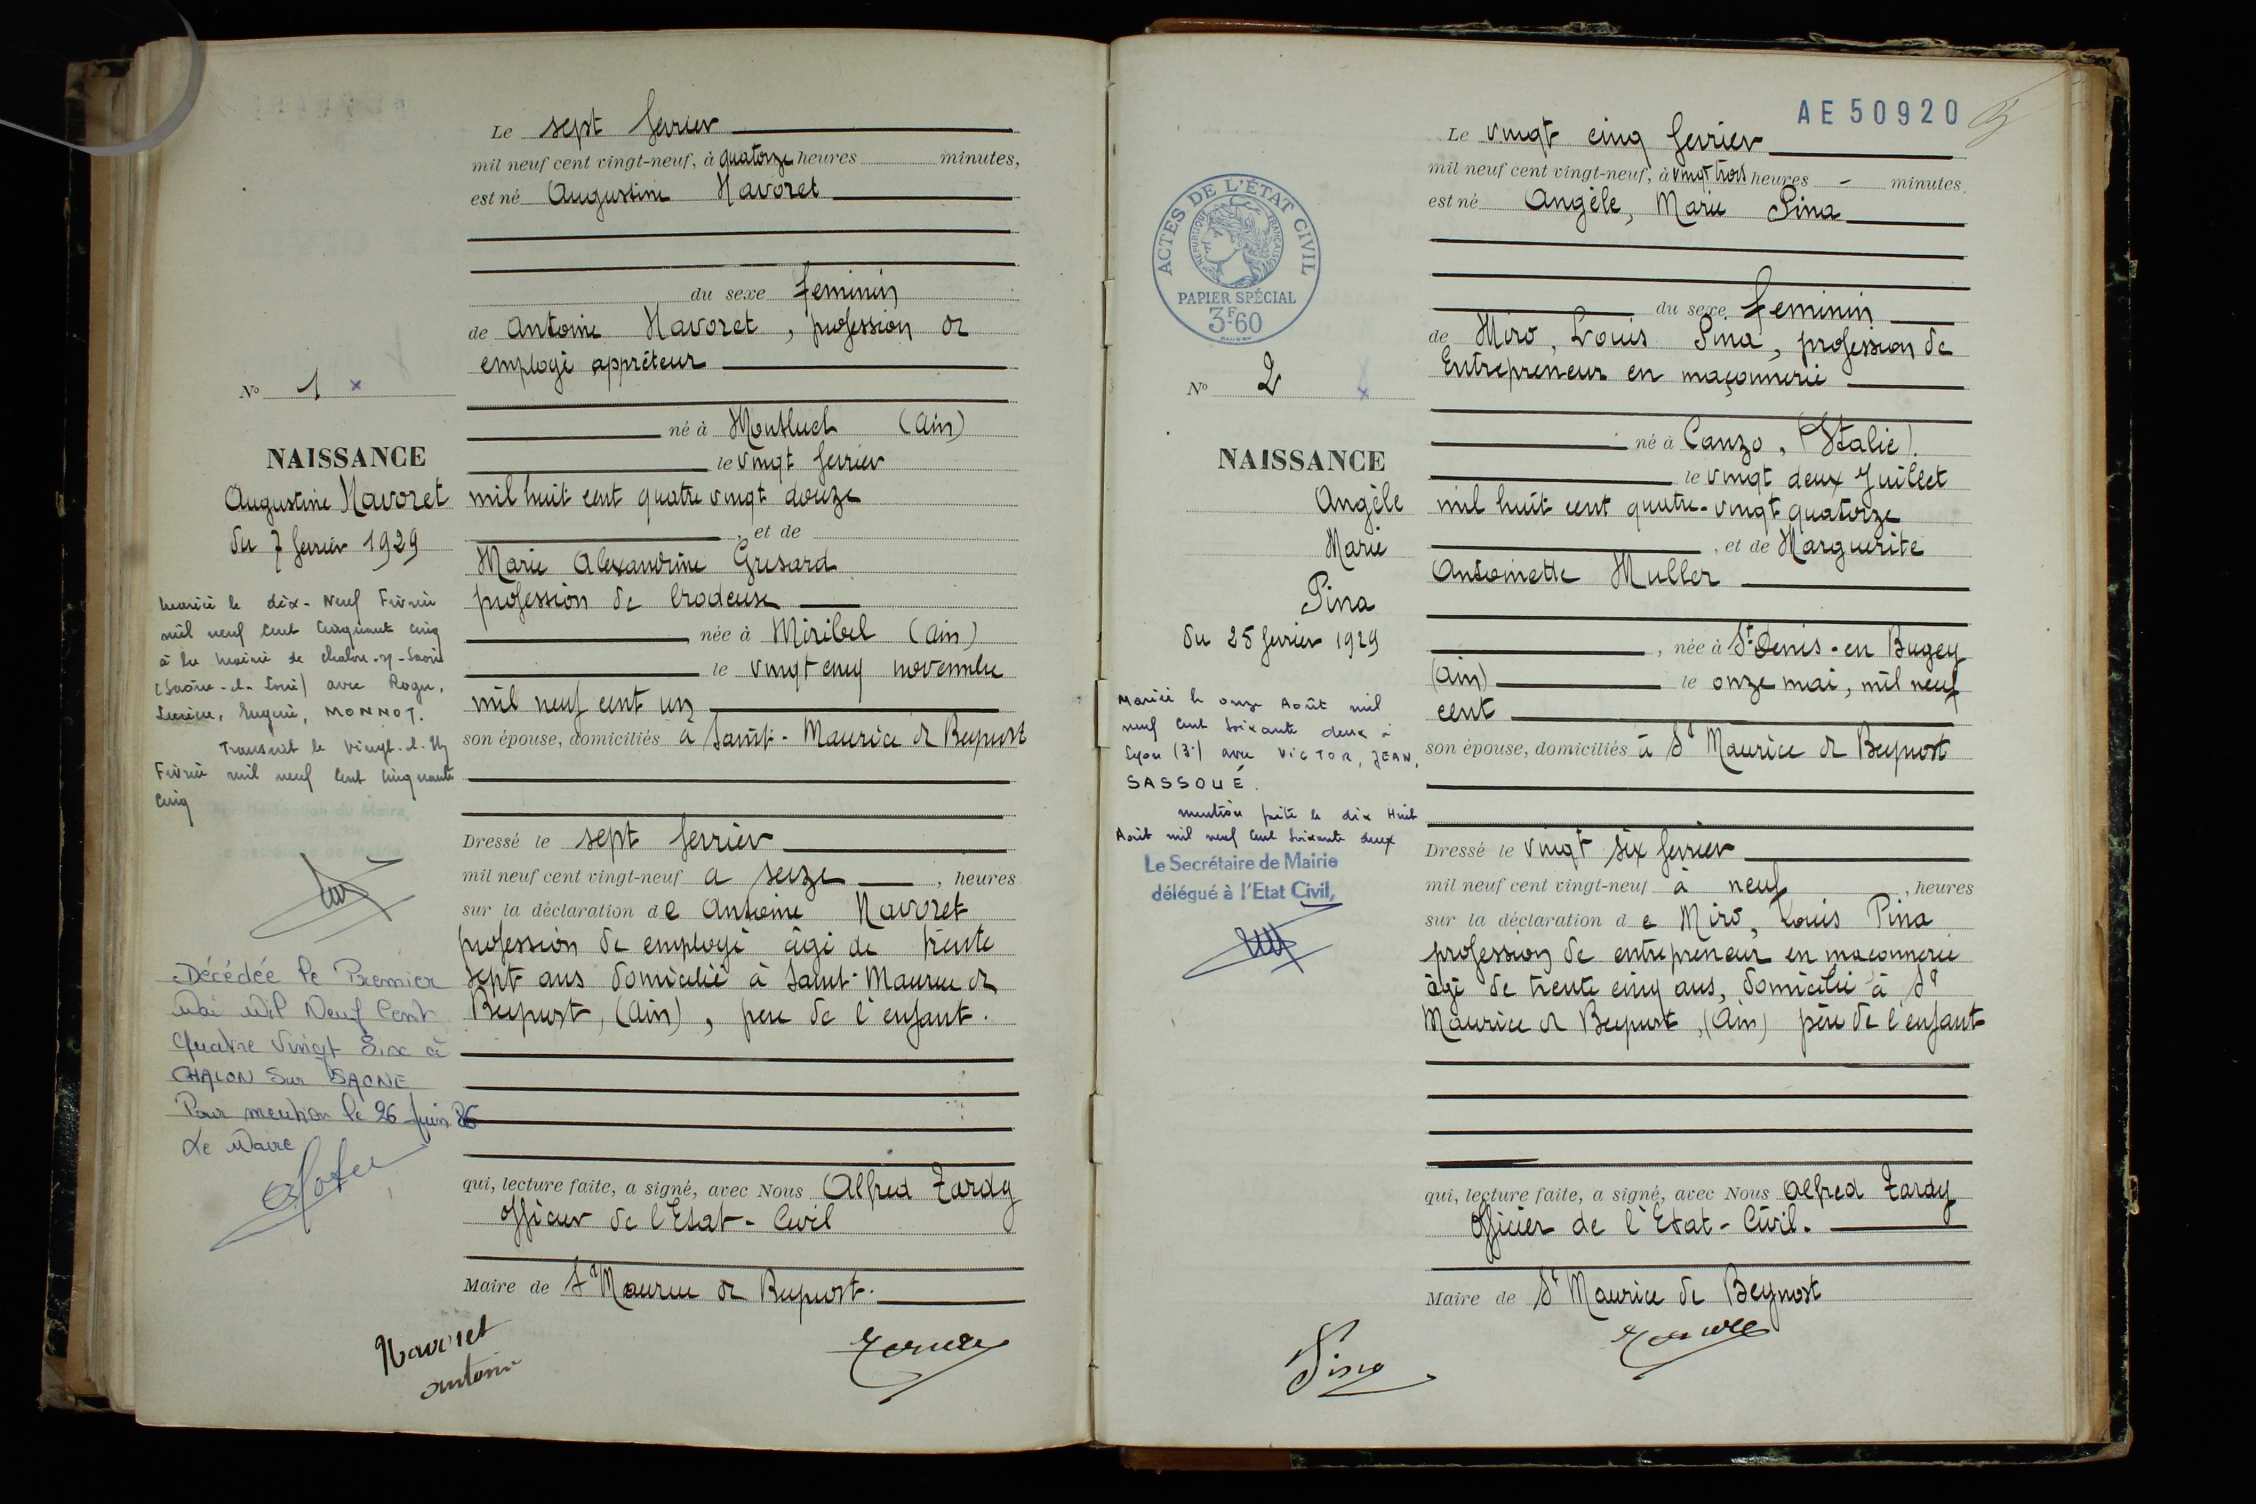 Le sept fevrier
mil neuf cent vingt-neuf, à quatorze heures minutes,
est né Augustine Navoret
du sexe feminin
de Antoine Navoret, profession de
employé appréteur
N° 1 x
né à Montluel (Ain)
NAISSANCE
le vingt fevrier
Augustine Navoret
mil huit cent quatre vingt douze
du 7 fevrier 1929
, et de
Marie Alexandrine Grisard
profession de brodeuse
née à Miribel (Ain)
le vingt cinq novembre
mil neuf cent un
son épouse, domiciliés à Saint-Maurice de Beynost
Mariée le dix-Neuf Février
mil neuf cent cinquante cinq
à la mairie de Chalon-s-Saône
(Saône-et-Loire) avec Roger,
Lucien, Eugène, MONNOT.
Transcrit le vingt-et-un
Février mil neuf cent cinquante
cinq
Dressé le sept fevrier
mil neuf cent vingt-neuf a seize, heures
sur la déclaration de Antoine Navoret
profession de employé âgé de trente
sept ans domicilié à Saint-Maurice de
Beynost, (Ain), père de l'enfant.
Décédée le Premier
Mai Mil Neuf Cent
Quatre Vingt Six à
CHALON Sur SAONE
Pour mention le 26 Juin 86
Le Maire
qui, lecture faite, a signé, avec Nous Alfred Tardy
officier de l'Etat-Civil
Maire de St Maurice de Beynost.
Navoret
antoine
AE50920
Le vingt cinq fevrier
mil neuf cent vingt-neuf, à vingt trois heures - minutes.
est né Angèle, Marie Pina
ACTES DE L'ÉTAT CIVIL
RÉPUBLIQUE FRANÇAISE
PAPIER SPÉCIAL
3F60
du sexe feminin
de Miro, Louis Pina, profession de
Entrepreneur en maçonnerie
N° 2 x
né à Canzo, (Italie).
NAISSANCE
le vingt deux Juillet
Angèle
mil huit cent quatre-vingt quatorze
Marie
, et de Marguerite
Antoinette Muller
Pina
du 25 fevrier 1929
, née à St Denis-en Bugey
(Ain) le onze mai, mil neuf
cent
son épouse, domiciliés à St Maurice de Beynost
Mariée le onze Août mil
neuf cent soixante deux à
Lyon (3e) avec VICTOR, JEAN,
SASSOUÉ.
mention faite le dix Huit
Août mil neuf cent soixante deux
Le Secrétaire de Mairie
délégué à l'Etat Civil,
Dressé le vingt six fevrier
mil neuf cent vingt-neuf à neuf, heures
sur la déclaration de Miro, Louis Pina
profession de entrepreneur en maçonnerie
âgé de trente cinq ans, domicilié à St
Maurice de Beynost, (Ain) père de l'enfant
qui, lecture faite, a signé, avec Nous Alfred Tardy
Officier de l'Etat-Civil.
Maire de St Maurice de Beynost
Pina